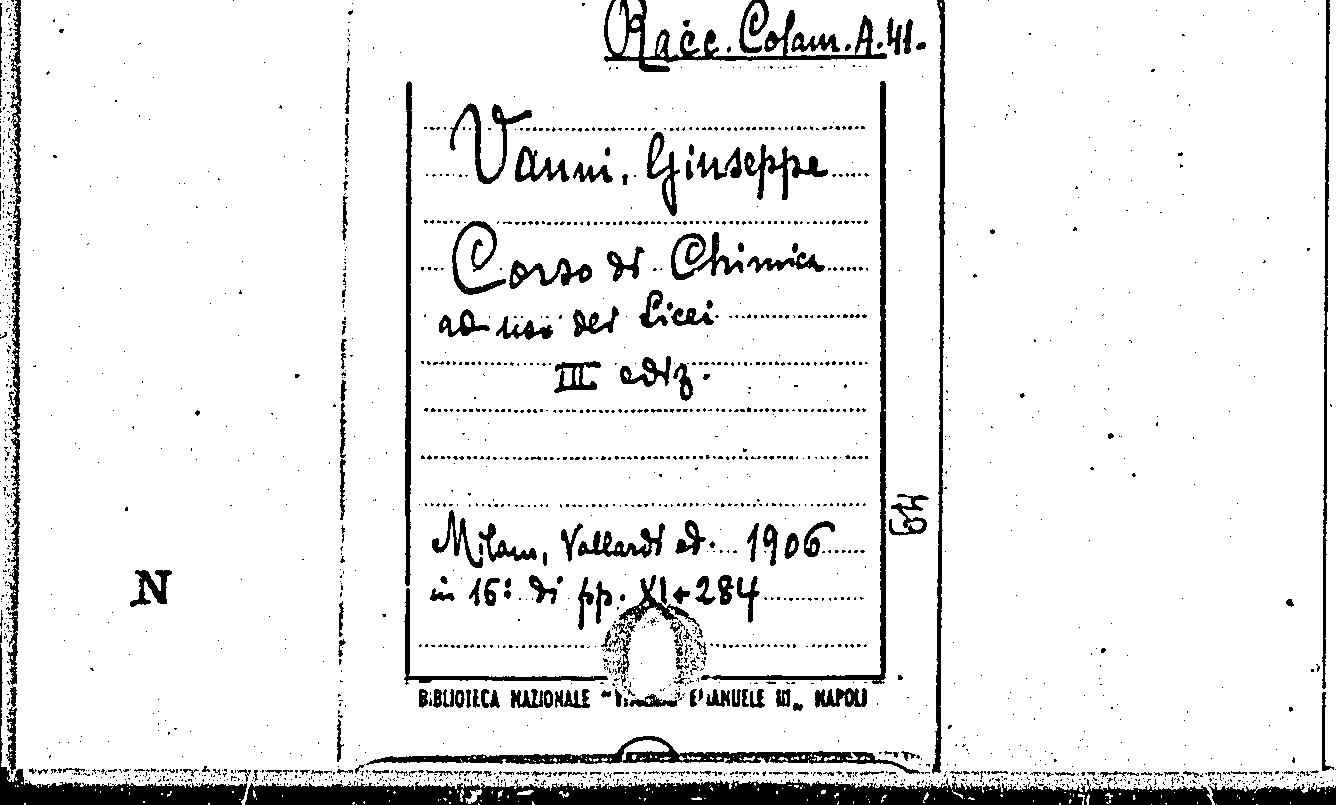 Racc. Colam. A. 41.
Vanni, Giuseppe
Corso di Chimica
ad uso dei Licei
III ediz.
Milano, Vallardi ed. 1906
in 16: di pp. XI+284
49
N
BIBLIOTECA NAZIONALE "VITTORIO EMANUELE III" NAPOLI